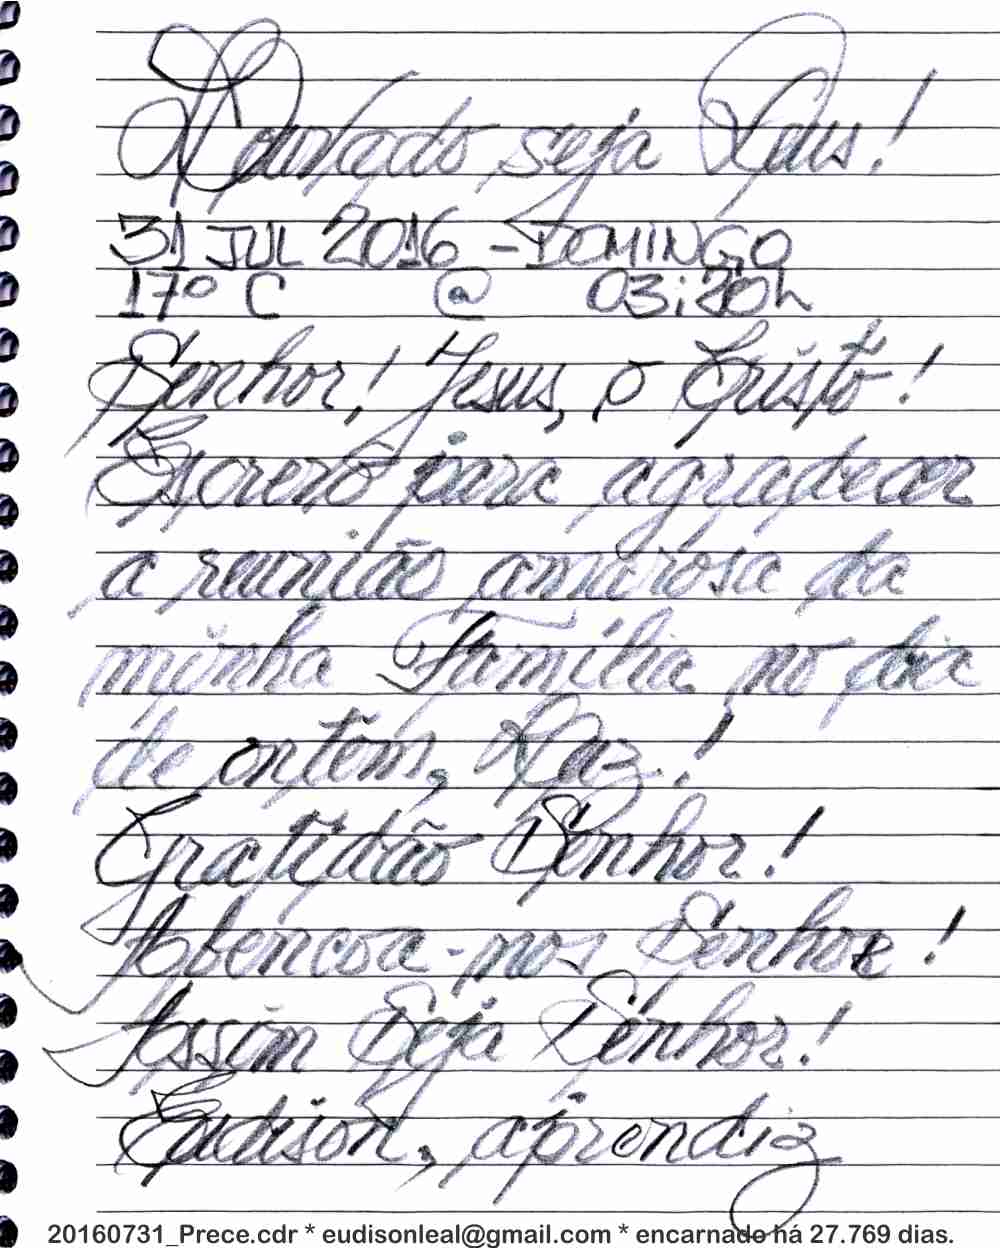 Louvado seja Deus!
31 JUL 2016 - DOMINGO
17º C @ 03:20h
Senhor! Jesus, o Cristo!
Escrevo para agradecer
a reunião amorosa da
minha Família no dia
de ontem, Paz!
Gratidão Senhor!
Abençoa-nos Senhor!
Assim Seja Senhor!
Eudison, aprendiz
20160731_Prece.cdr * eudisonleal@gmail.com * encarnado há 27.769 dias.